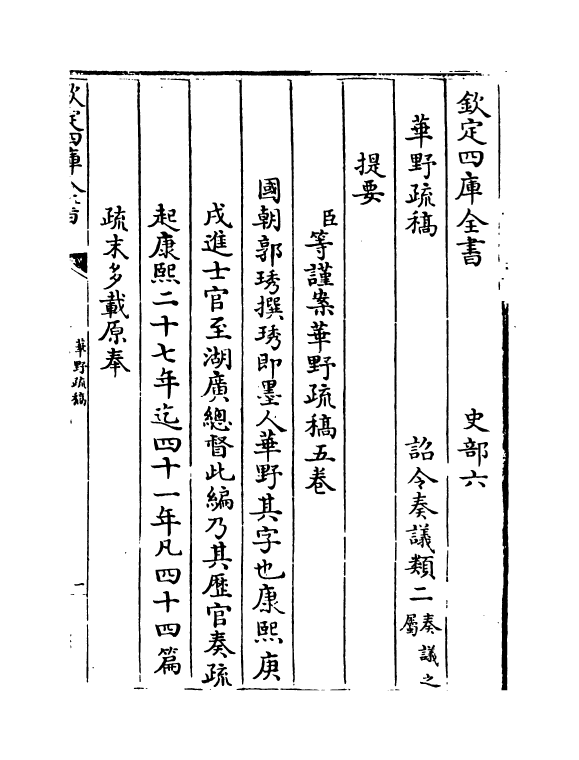 欽定四庫全書 史部六
華野疏稿 詔令奏議類二奏議之屬
提要
臣等謹案華野疏稿五卷
國朝郭琇撰琇即墨人華野其字也康熙庚
戌進士官至湖廣總督此編乃其歷官奏疏
起康熙二十七年迄四十一年凡四十四篇
疏末多載原奉
欽定四庫全書
華野疏稿
一